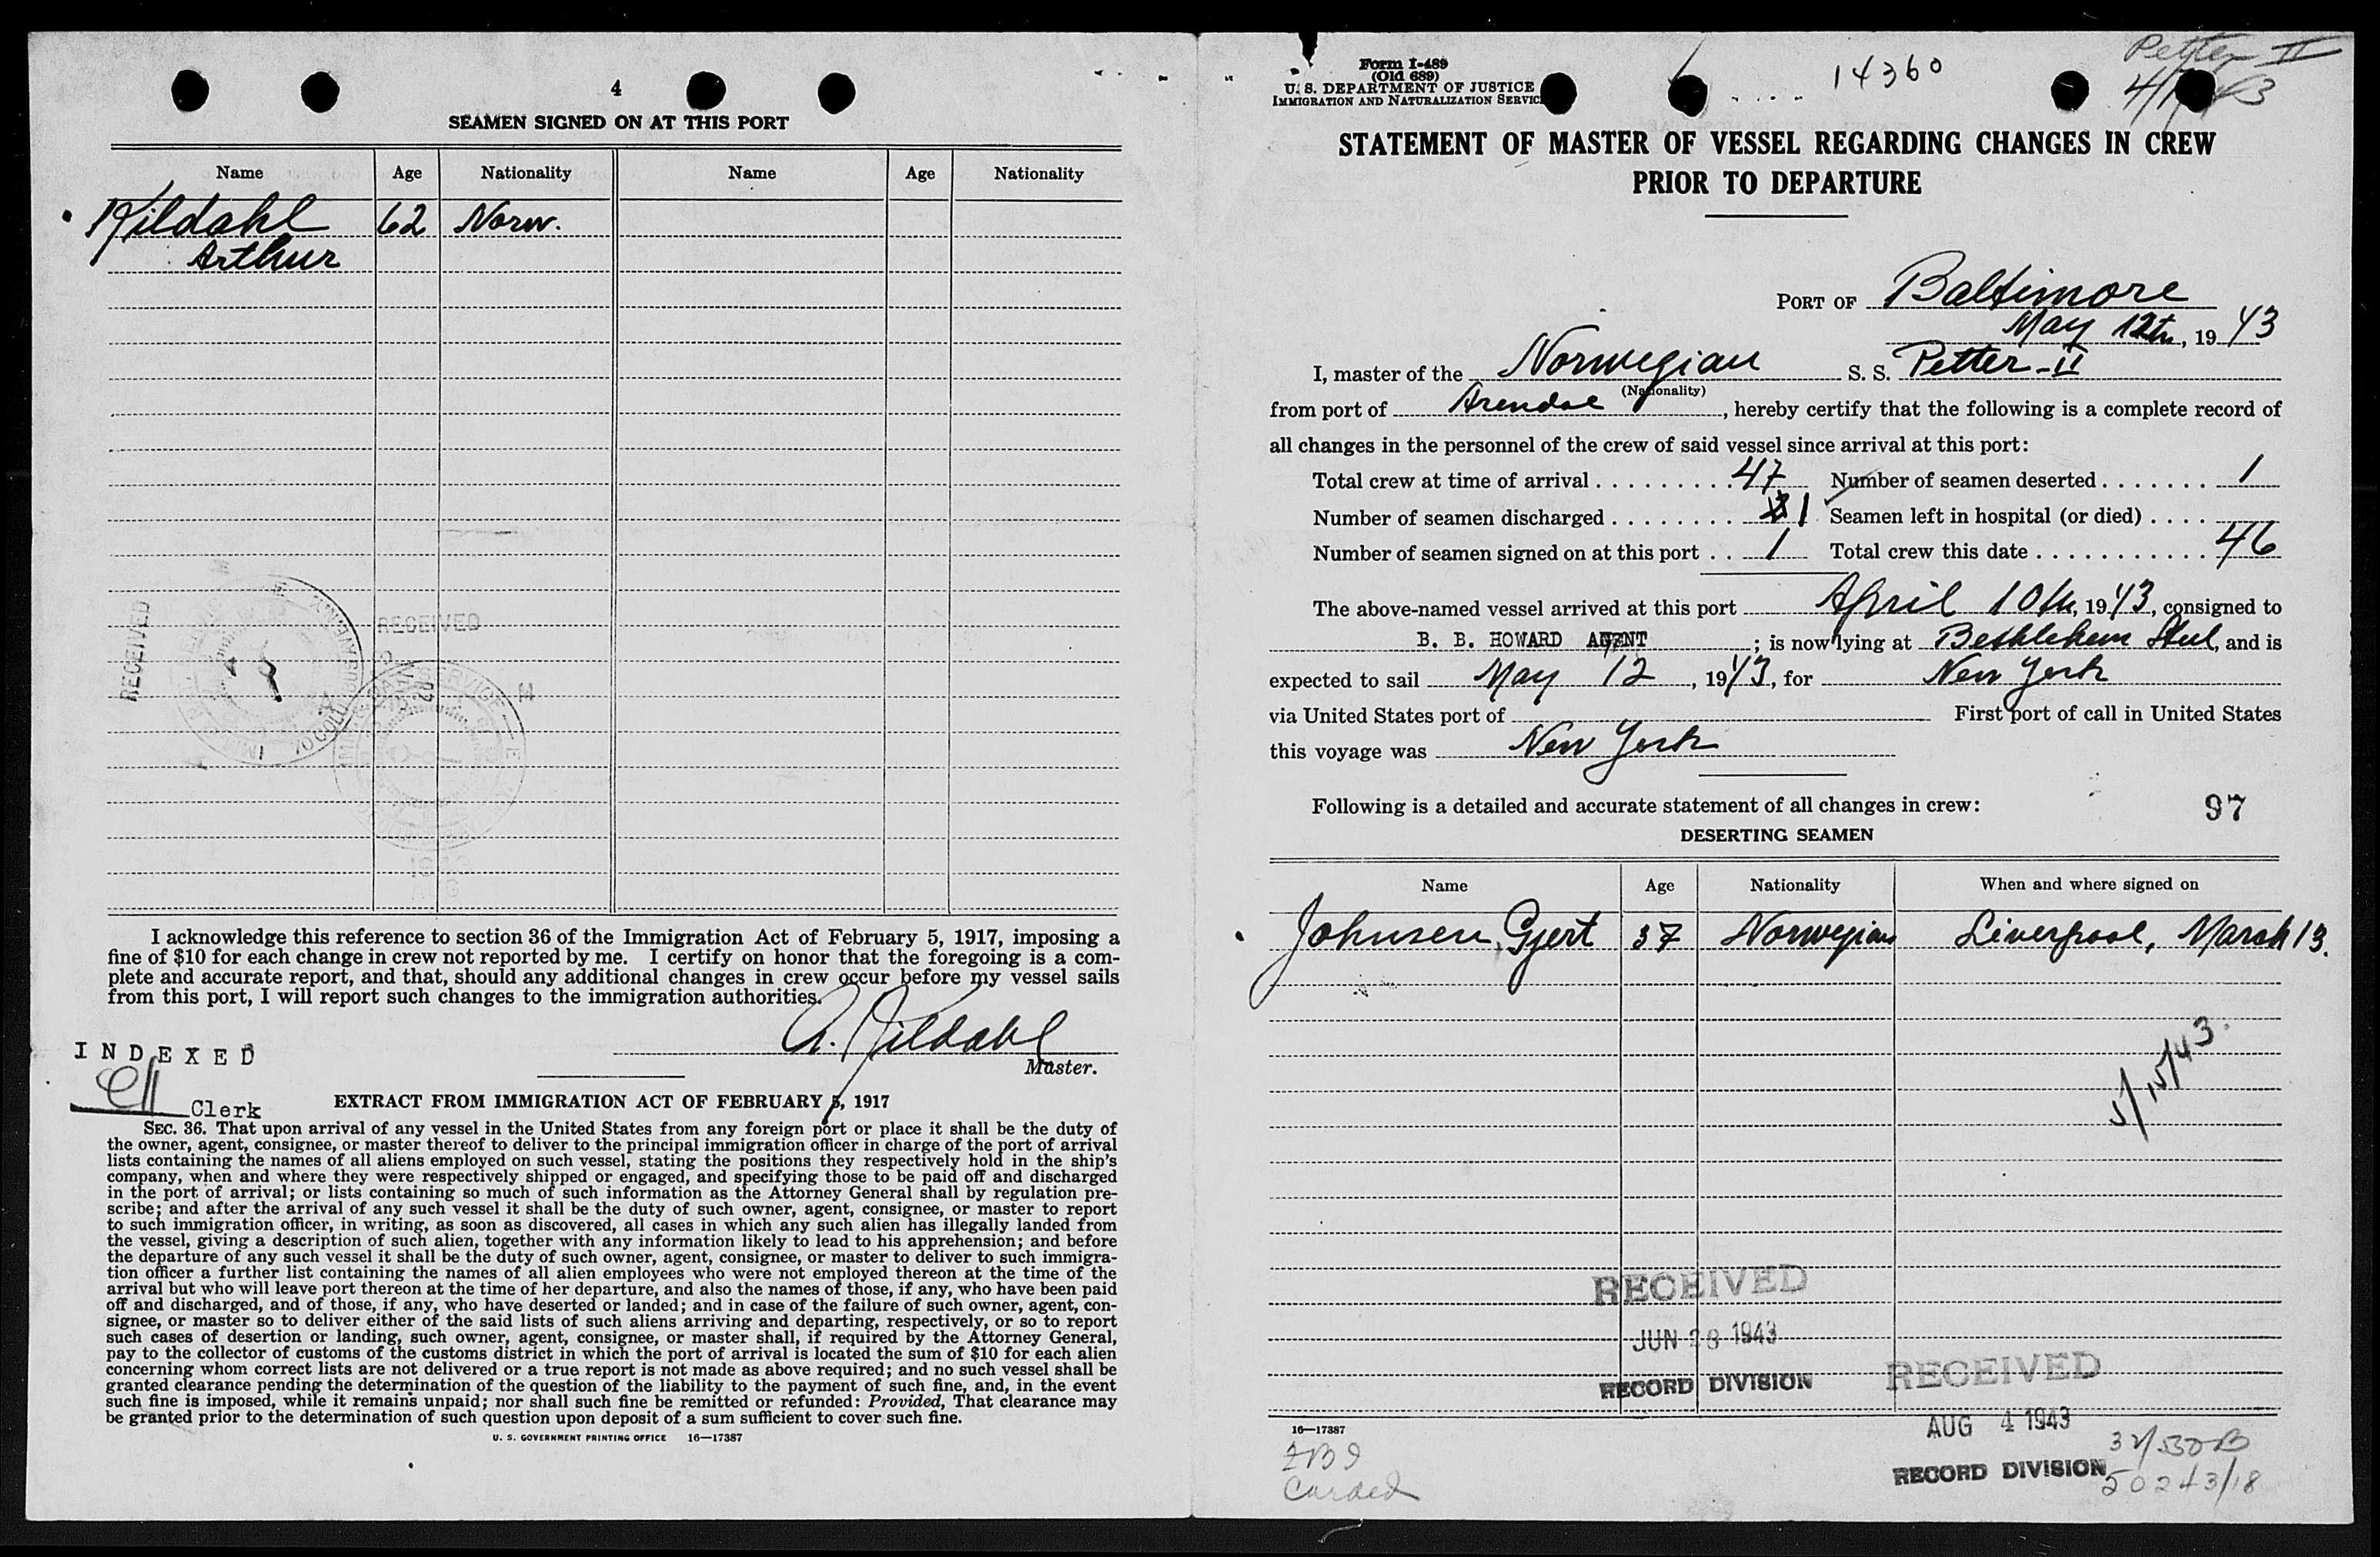 4
SEAMEN SIGNED ON AT THIS PORT
Name Age Nationality Name Age Nationality
Kildahl 62 Norw.
Arthur
RECEIVED
RECEIVED
I acknowledge this reference to section 36 of the Immigration Act of February 5, 1917, imposing a
fine of $10 for each change in crew not reported by me. I certify on honor that the foregoing is a com-
plete and accurate report, and that, should any additional changes in crew occur before my vessel sails
from this port, I will report such changes to the immigration authorities.
A. Kildahl
Master.
INDEXED
Clerk
EXTRACT FROM IMMIGRATION ACT OF FEBRUARY 5, 1917
SEC. 36. That upon arrival of any vessel in the United States from any foreign port or place it shall be the duty of
the owner, agent, consignee, or master thereof to deliver to the principal immigration officer in charge of the port of arrival
lists containing the names of all aliens employed on such vessel, stating the positions they respectively hold in the ship's
company, when and where they were respectively shipped or engaged, and specifying those to be paid off and discharged
in the port of arrival; or lists containing so much of such information as the Attorney General shall by regulation pre-
scribe; and after the arrival of any such vessel it shall be the duty of such owner, agent, consignee, or master to report
to such immigration officer, in writing, as soon as discovered, all cases in which any such alien has illegally landed from
the vessel, giving a description of such alien, together with any information likely to lead to his apprehension; and before
the departure of any such vessel it shall be the duty of such owner, agent, consignee, or master to deliver to such immigra-
tion officer a further list containing the names of all alien employees who were not employed thereon at the time of the
arrival but who will leave port thereon at the time of her departure, and also the names of those, if any, who have been paid
off and discharged, and of those, if any, who have deserted or landed; and in case of the failure of such owner, agent, con-
signee, or master so to deliver either of the said lists of such aliens arriving and departing, respectively, or so to report
such cases of desertion or landing, such owner, agent, consignee, or master shall, if required by the Attorney General,
pay to the collector of customs of the customs district in which the port of arrival is located the sum of $10 for each alien
concerning whom correct lists are not delivered or a true report is not made as above required; and no such vessel shall be
granted clearance pending the determination of the question of the liability to the payment of such fine, and, in the event
such fine is imposed, while it remains unpaid; nor shall such fine be remitted or refunded: Provided, That clearance may
be granted prior to the determination of such question upon deposit of a sum sufficient to cover such fine.
U. S. GOVERNMENT PRINTING OFFICE 16—17387
Form I-489
(Old 689)
U. S. DEPARTMENT OF JUSTICE
IMMIGRATION AND NATURALIZATION SERVICE
14360
Petter II
STATEMENT OF MASTER OF VESSEL REGARDING CHANGES IN CREW
PRIOR TO DEPARTURE
PORT OF Baltimore
May 12th, 19 43
I, master of the Norwegian S. S. Petter-II
(Nationality)
from port of Arendal, hereby certify that the following is a complete record of
all changes in the personnel of the crew of said vessel since arrival at this port:
Total crew at time of arrival . . . . . . . . . 47 Number of seamen deserted . . . . . . . 1
Number of seamen discharged . . . . . . . . 1 Seamen left in hospital (or died) . . . .
Number of seamen signed on at this port . . 1 Total crew this date . . . . . . . . . . . 46
The above-named vessel arrived at this port April 10th, 1943, consigned to
B. B. HOWARD AGENT ; is now lying at Bethlehem Steel, and is
expected to sail May 12, 1943, for New York
via United States port of First port of call in United States
this voyage was New York
Following is a detailed and accurate statement of all changes in crew: 97
DESERTING SEAMEN
Name Age Nationality When and where signed on
Johnsen, Gjert 37 Norwegian Liverpool, March 13.
5/15/43.
RECEIVED
JUN 28 1943
RECORD DIVISION
RECEIVED
AUG 4 1943
RECORD DIVISION
16—17387
Carded
50243/18